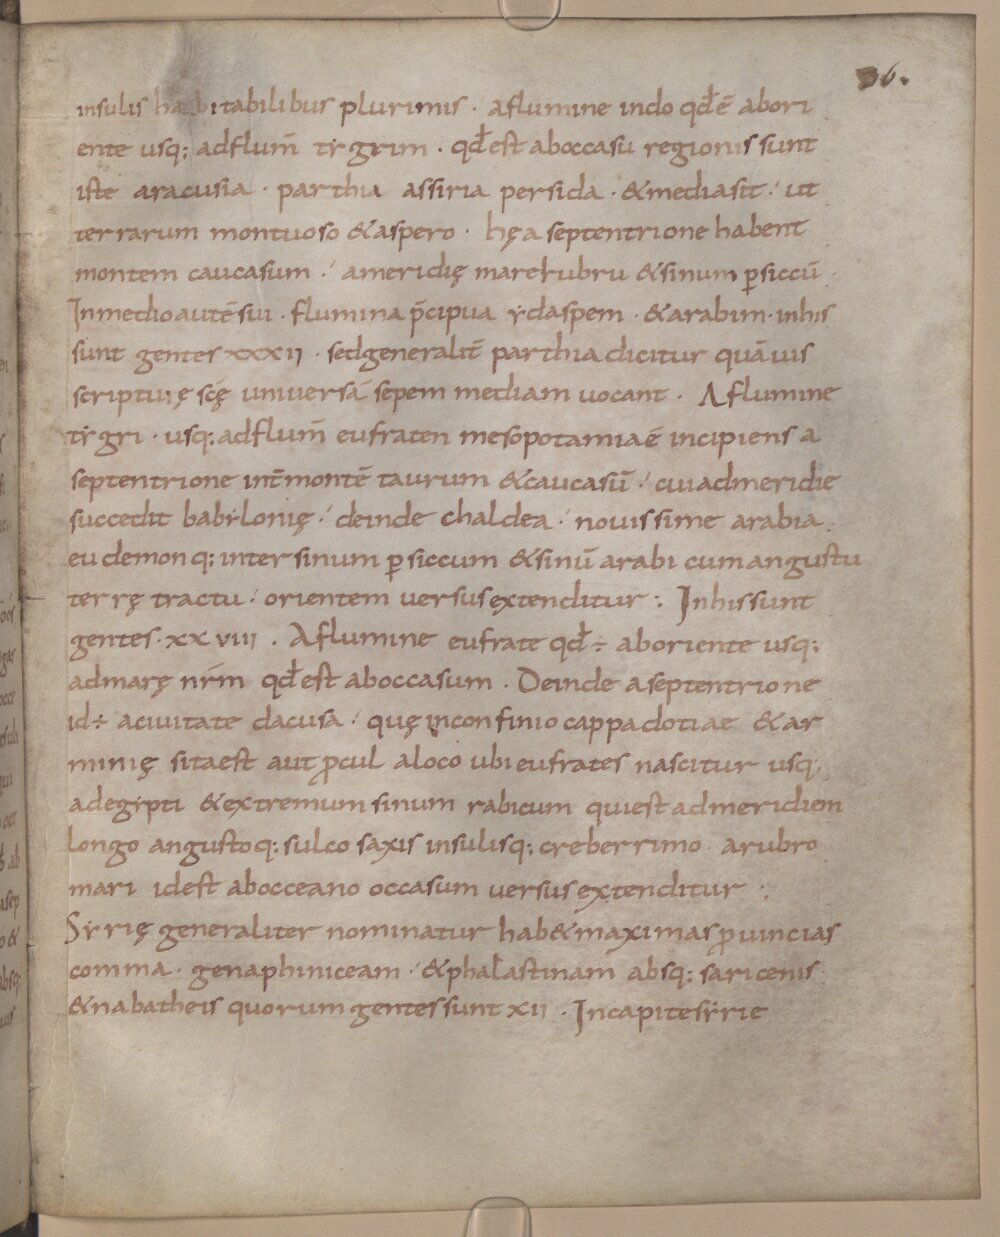 36.
insulis habitabilibus plurimis · aflumine indo qđē abori
ente usq; adflum̄ tẏgrim · qđest aboccasu regionis sunt
iste aracusia · parthia assiria persida · &mediasit ·/ ut
terrarum montuoso &aspero · hęa septentrione habent
montem caucasum ·/ ameridię marerubru &sinum ꝑsiccū ·
Inmedio autē sui · flumina p̄cipua ẏdaspem · &arabim · inhis
sunt gentes xxxii · sedgeneralit̄ parthia dicitur quāuis
scripturę scę universā sepem mediam uocant · Aflumine
tẏgri · usq; adflum̄ eufraten mesopotamiaē incipiens a
septentrione int̄montē taurum &caucasū ·/ cuiadmeridię
succedit babẏlonię ·/ deinde chaldea ·/ nouissime arabia
eudemonq; intersinum ꝑsiccum &sinū arabi cumangustu
terrę tractu ·/ orientem uersusextenditur : Inhissunt
gentes · xxviii · Aflumine eufrate qđ ÷ aboriente usq;
admarę nr̄m qđest aboccasum · Deinde aseptentrione
id ÷ aciuitate dacusa ·/ quę inconfinio cappadotiae &ar
minię sitaest aut ꝓcul aloco ubieufrates nascitur usq;
adegẏpti &extremumsinum rabicum quiest admeridiem
longo angustoq; sulco saxis insulisq; creberrimo · arubro
mari idest abocceano occasum uersusextenditur :
Sẏrię generaliter nominatur hab&maximasꝓuincias
comma · genaphiniceam ·/ &phalastinam absq; saricenis
&nabatheis quorumgentessunt xii · Incapitesẏrie